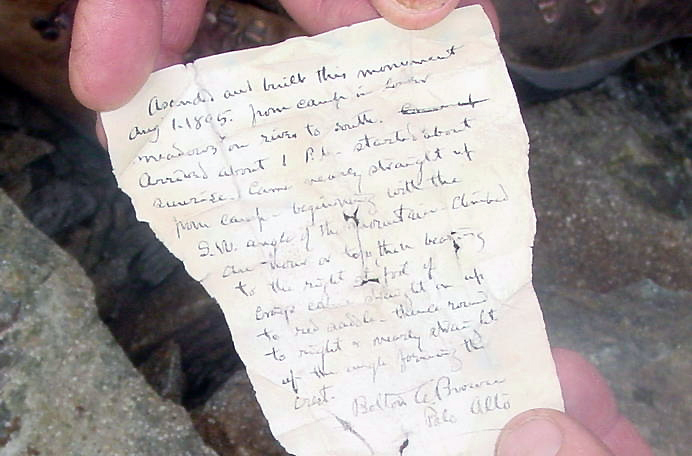 Ascended and built this monument
Aug 1 1895. from camp in lower
meadows on river to south. Came up
Arrived about 1 P.M. started about
sunrise. Came nearly straight up
from camp beginning with the
S.W. angle of the mountain. Climbed
an hour or so then bearing
to the right foot of
crags came straight on up
to red saddle thence round
to right & nearly straight
up the angle forming the
crest. Bolton C Brown
Palo Alto